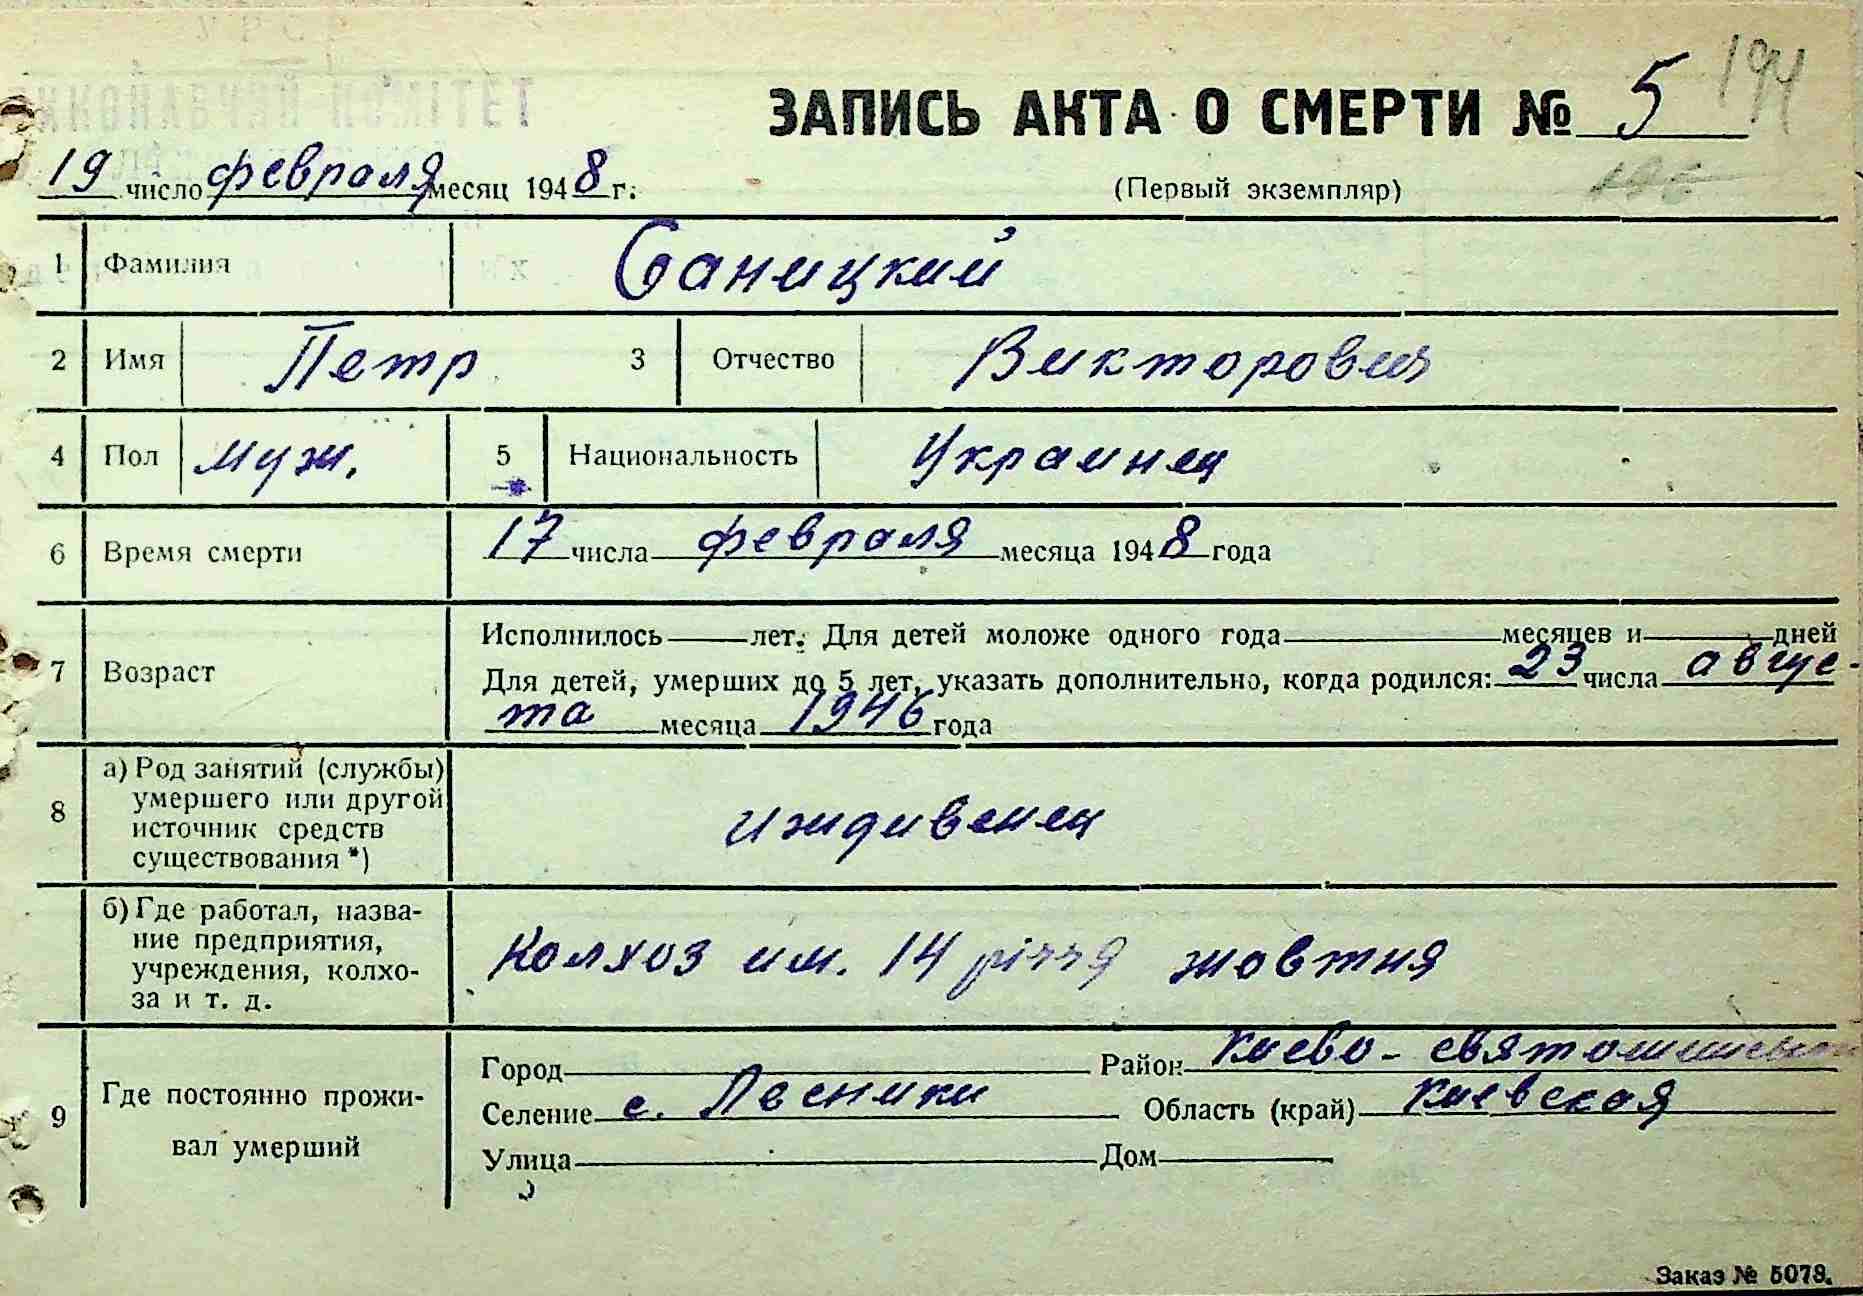 ЗАПИСЬ АКТА О СМЕРТИ № 5 194
19 число февраля месяц 1948 г.
(Первый экземпляр)
1 Фамилия Саницкий
2 Имя Петр 3 Отчество Викторович
4 Пол муж. 5 Национальность Украинец
6 Время смерти 17 числа февраля месяца 1948 года
7 Возраст
Исполнилось лет. Для детей моложе одного года месяцев и дней
Для детей, умерших до 5 лет, указать дополнительно, когда родился: 23 числа авгус-
та месяца 1946 года
8 а) Род занятий (службы)
умершего или другой
источник средств
существования *)
иждивенец
б) Где работал, назва-
ние предприятия,
учреждения, колхо-
за и т. д.
Колхоз им. 14 річчя жовтня
9 Где постоянно прожи-
вал умерший
Город Район Киево-Святошинский
Селение с. Лесники Область (край) Киевская
Улица Дом
Заказ № 5078.